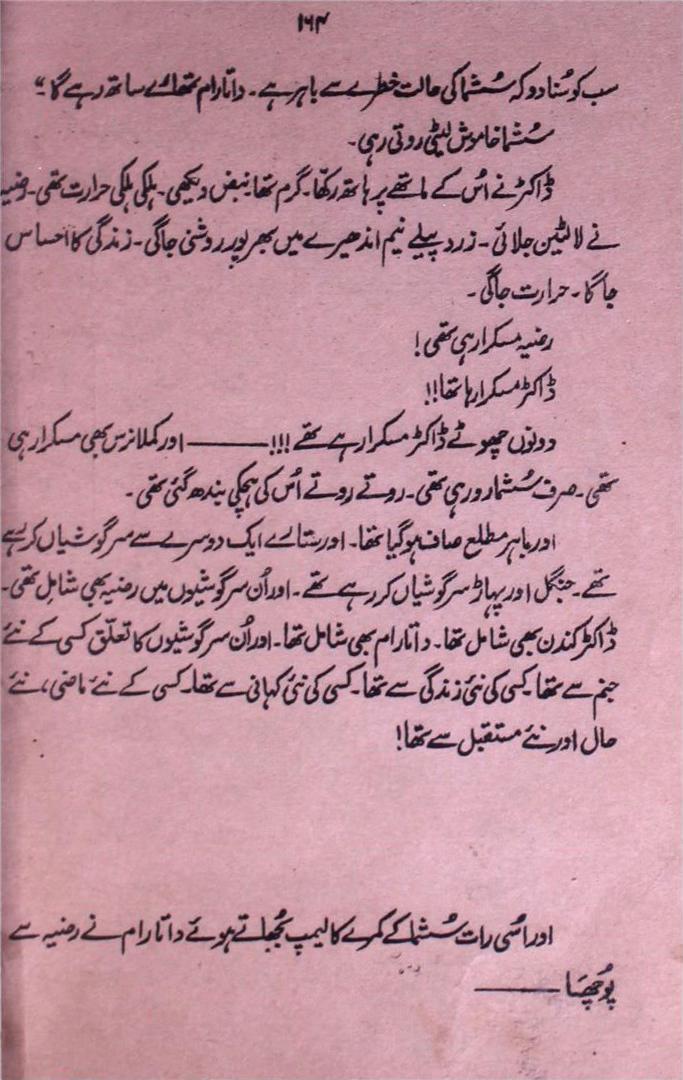 ۱۶۴
سب کو سُنا دو کہ سُشما کی حالت خطرے سے باہر ہے۔ داتا رام تمھارے ساتھ رہے گا۔"
سُشما خاموش لیٹی روتی رہی۔
ڈاکٹر نے اُس کے ماتھے پر ہاتھ رکھا۔ گرم تھا۔ نبض دیکھی۔ ہلکی ہلکی حرارت تھی۔ رضیہ
نے لالٹین جلائی۔ زرد پیلے نیم اندھیرے میں بھرپور روشنی جاگی۔ زندگی کا احساس
جاگا۔ حرارت جاگی۔
رضیہ مسکرا رہی تھی!
ڈاکٹر مسکرا رہا تھا!!
دونوں چھوٹے ڈاکٹر مسکرا رہے تھے !!! ——— اور کملا نرس بھی مسکرا رہی
تھی۔ صرف سُشما رو رہی تھی۔ روتے روتے اُس کی ہچکی بندھ گئی تھی۔
اور باہر مطلع صاف ہوگیا تھا۔ اور ستارے ایک دوسرے سے سرگوشیاں کر رہے
تھے۔ جنگل اور پہاڑ سرگوشیاں کر رہے تھے۔ اور اُن سرگوشیوں میں رضیہ بھی شامِل تھی۔
ڈاکٹر کندن بھی شامل تھا۔ داتا رام بھی شامل تھا۔ اور اُن سرگوشیوں کا تعلّق کسی کے نئے
جنم سے تھا۔ کسی کی نئی زندگی سے تھا۔ کسی کی نئی کہانی سے تھا۔ کسی کے نئے ماضی، نئے
حال اور نئے مستقبل سے تھا!
اور اسُی رات سُشما کے کمرے کا لیمپ بُجھاتے ہوئے داتا رام نے رضیہ سے
پوُچھَا ———